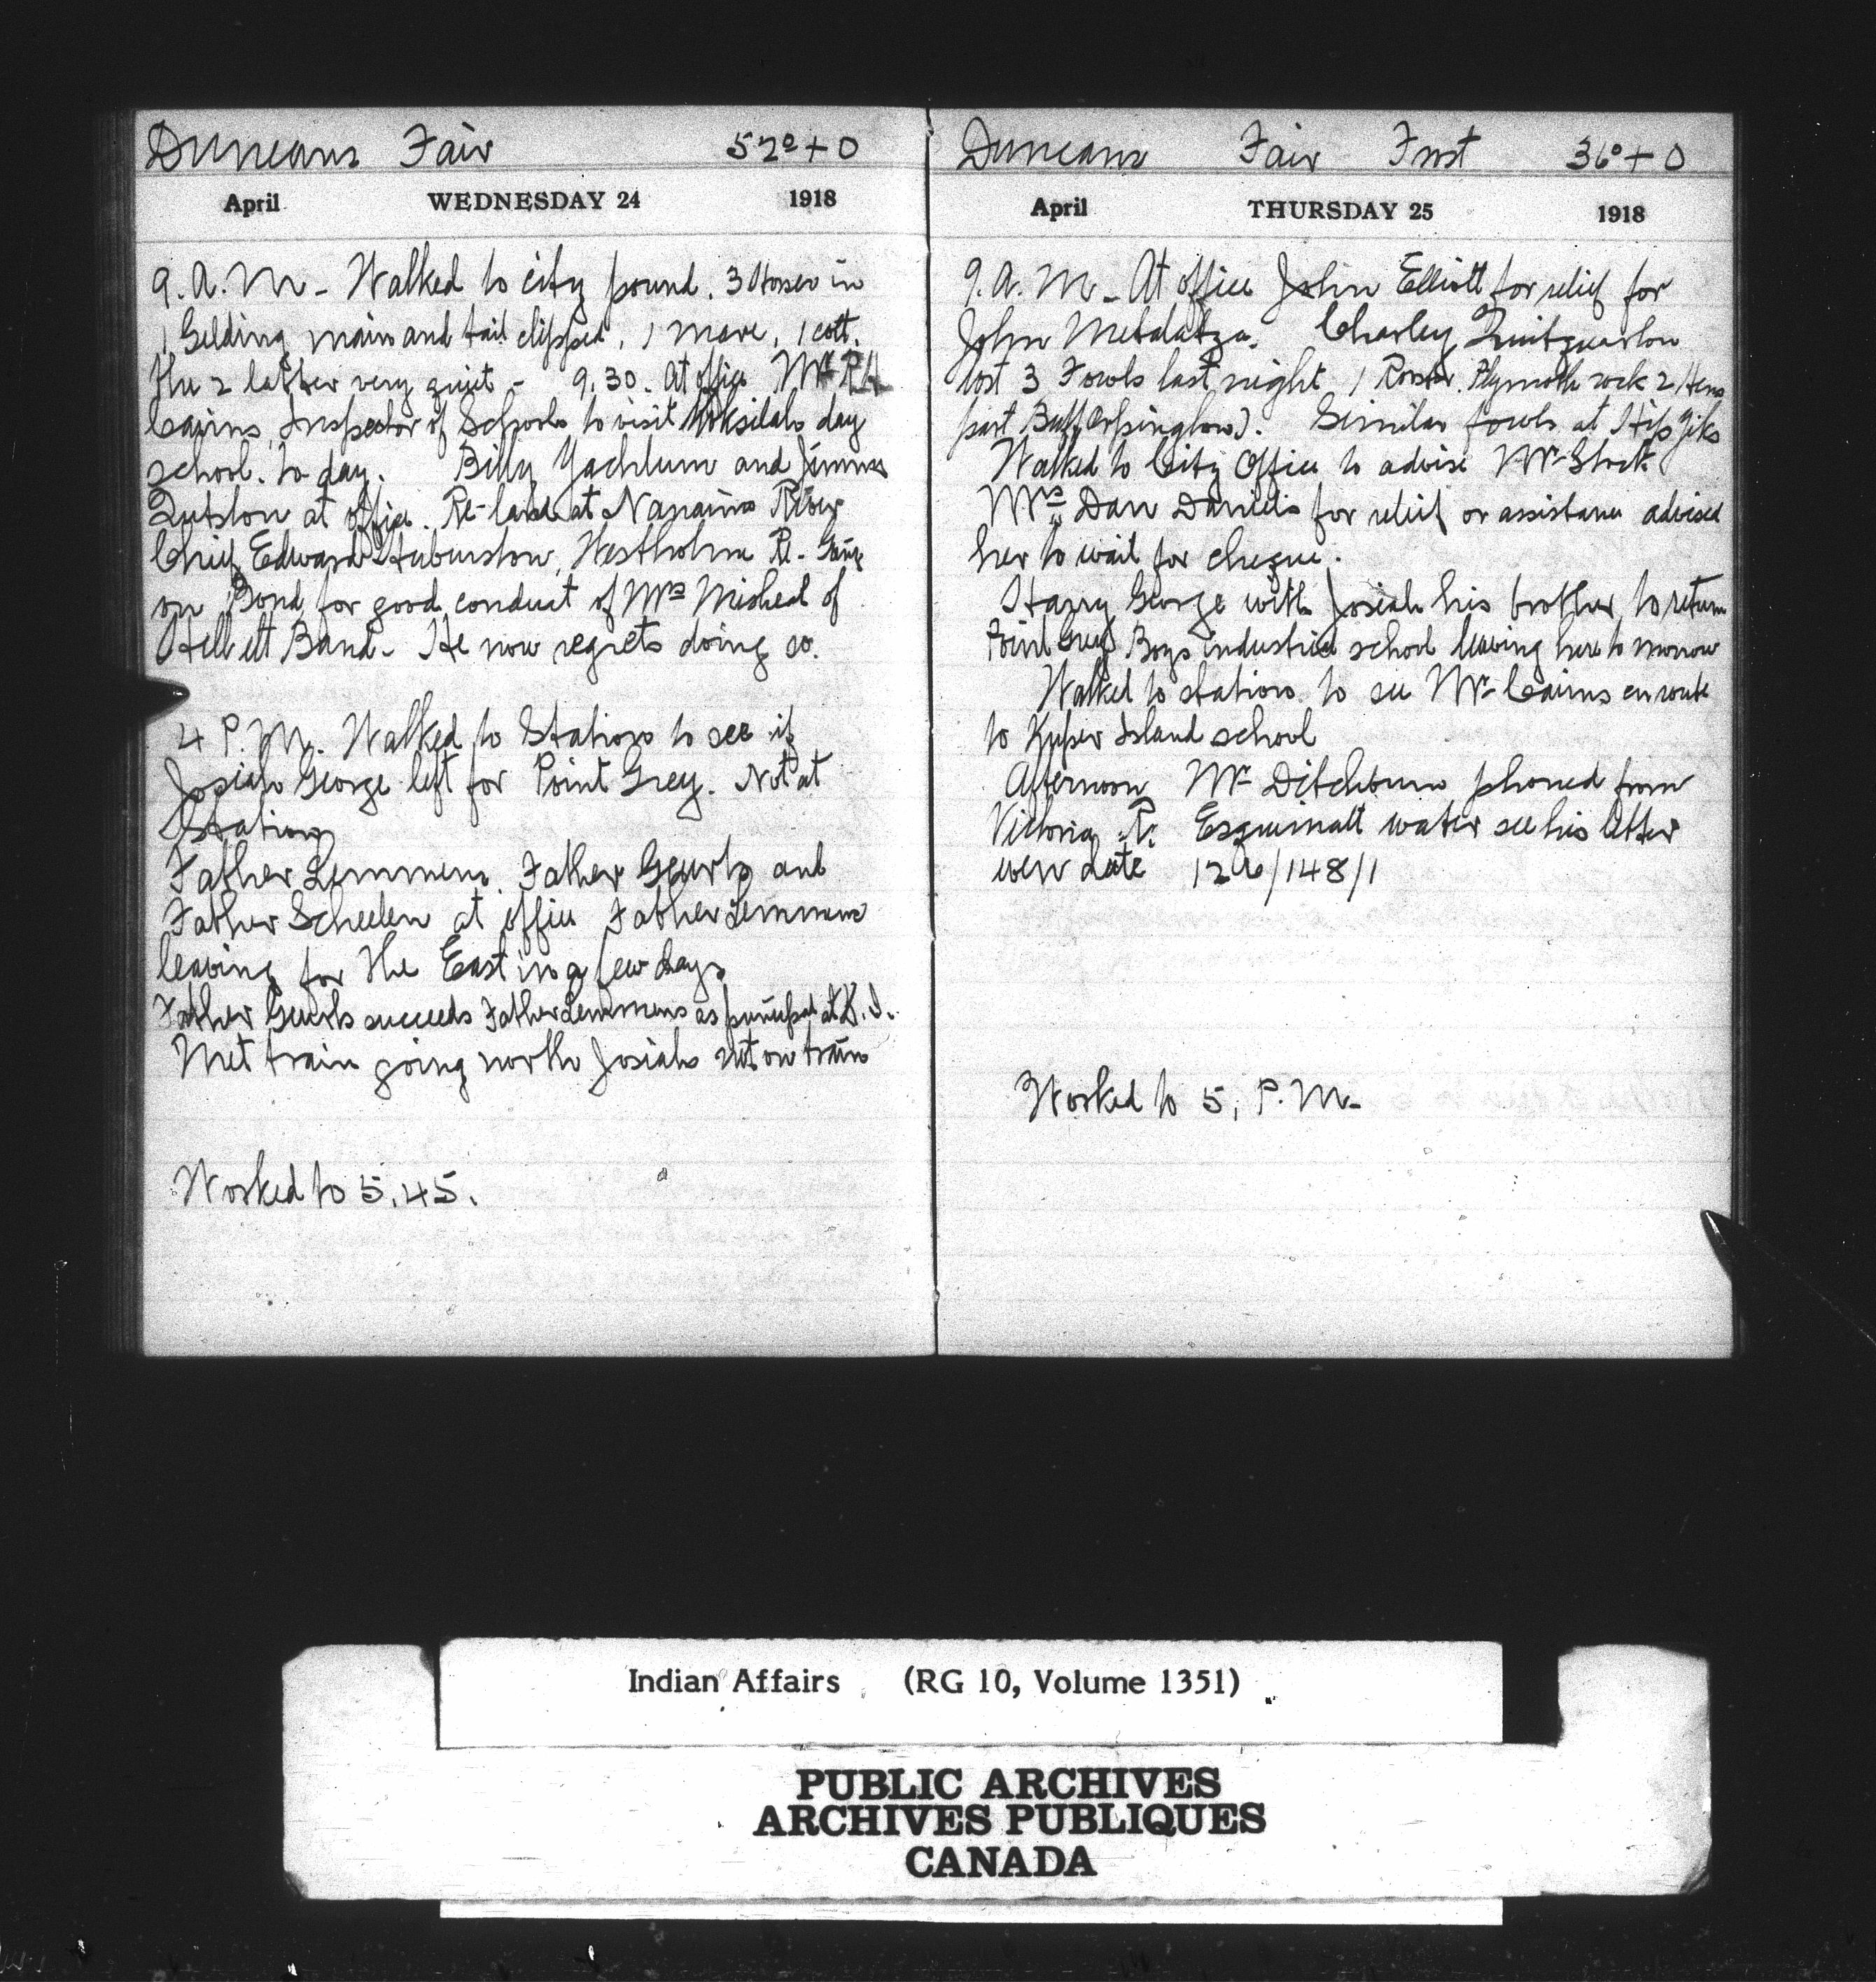 Duncans Fair 52°+0
April WEDNESDAY 24 1918
9. A. M - Walked to city pound. 3 Horses in
1 Gelding main and tail clipped, 1 mare, 1 colt.
the 2 latter very quiet - 9.30. At office Mr R H
Cairns, Inspector of Schools to visit Koksilah day
school. to day. Billy Yachlum and Jimmy
at office. Re- land at Nanaimo River
Chief Edward Westholme Re- Going
on Bond for good conduct of Mrs Micheal of
Hellett Band - He now regrets doing so.
4 P. M. Walked to Station to see if
Josiah George left for Point Grey. Not at
Station
Father Lemmens. Father Geurts and
Father Scheelen at office Father Lemmens
leaving for the East in a few days
Father Geurts succeeds Father Lemmens as principal at K. I.
Met train going north Josiah not on train
Worked to 5.45.
Duncans Fair Frost 36°+0
April THURSDAY 25 1918
9. A. M - At office John Elliott for relief for
John Metdatza. Charley Quitquarton
lost 3 Fowls last night 1 Rooster Plymoth rock 2 Hens
part Buff Orpington). Similar fowls at Hip Giks
Walked to City Office to advise Mr
Mrs Dan Daniels for relief or assistance advised
her to wait for cheque.
Harry George with Josiah his brother to return
Point Grey Boys industrial school leaving here to morrow
Walked to station to see Mr Cairns en route
to Kuper Island school
Afternoon Mr Ditchburn phoned from
Victoria R. Esquimalt water see his letter
even date 126/148/1
Worked to 5, P. M-
Indian Affairs (RG 10, Volume 1351)
PUBLIC ARCHIVES
ARCHIVES PUBLIQUES
CANADA